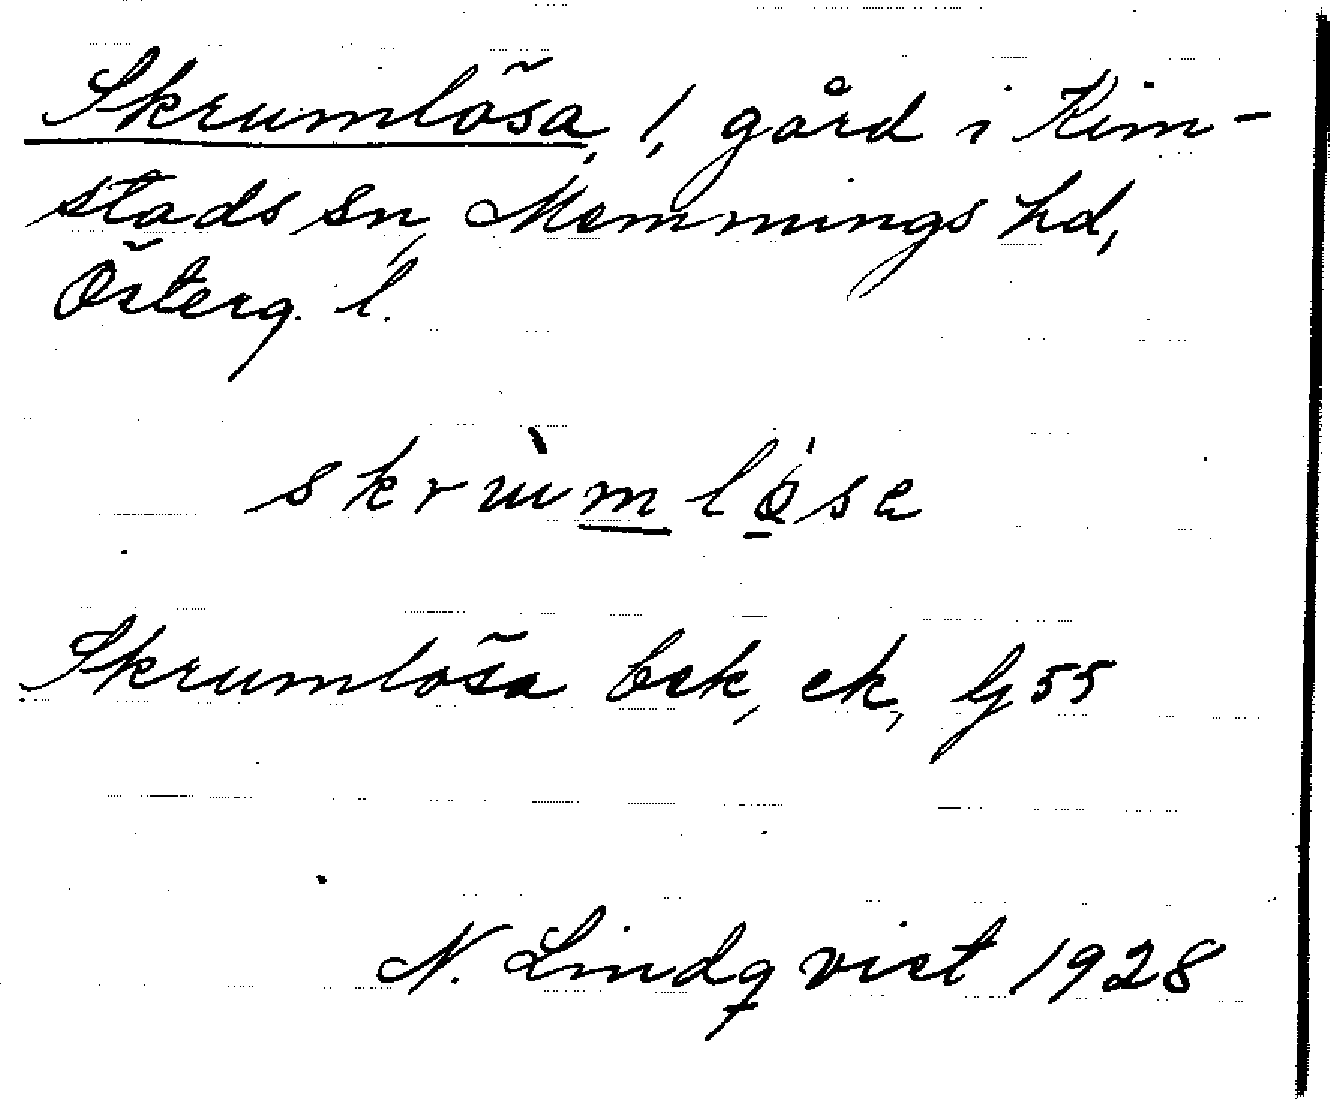 Skrumlösa, 1, gård i Kim-
stads sn, Memmings hd,
Österg. l.
skrùmlösa
Skrumlösa bek, ek, G 55
N. Lindqvist 1928